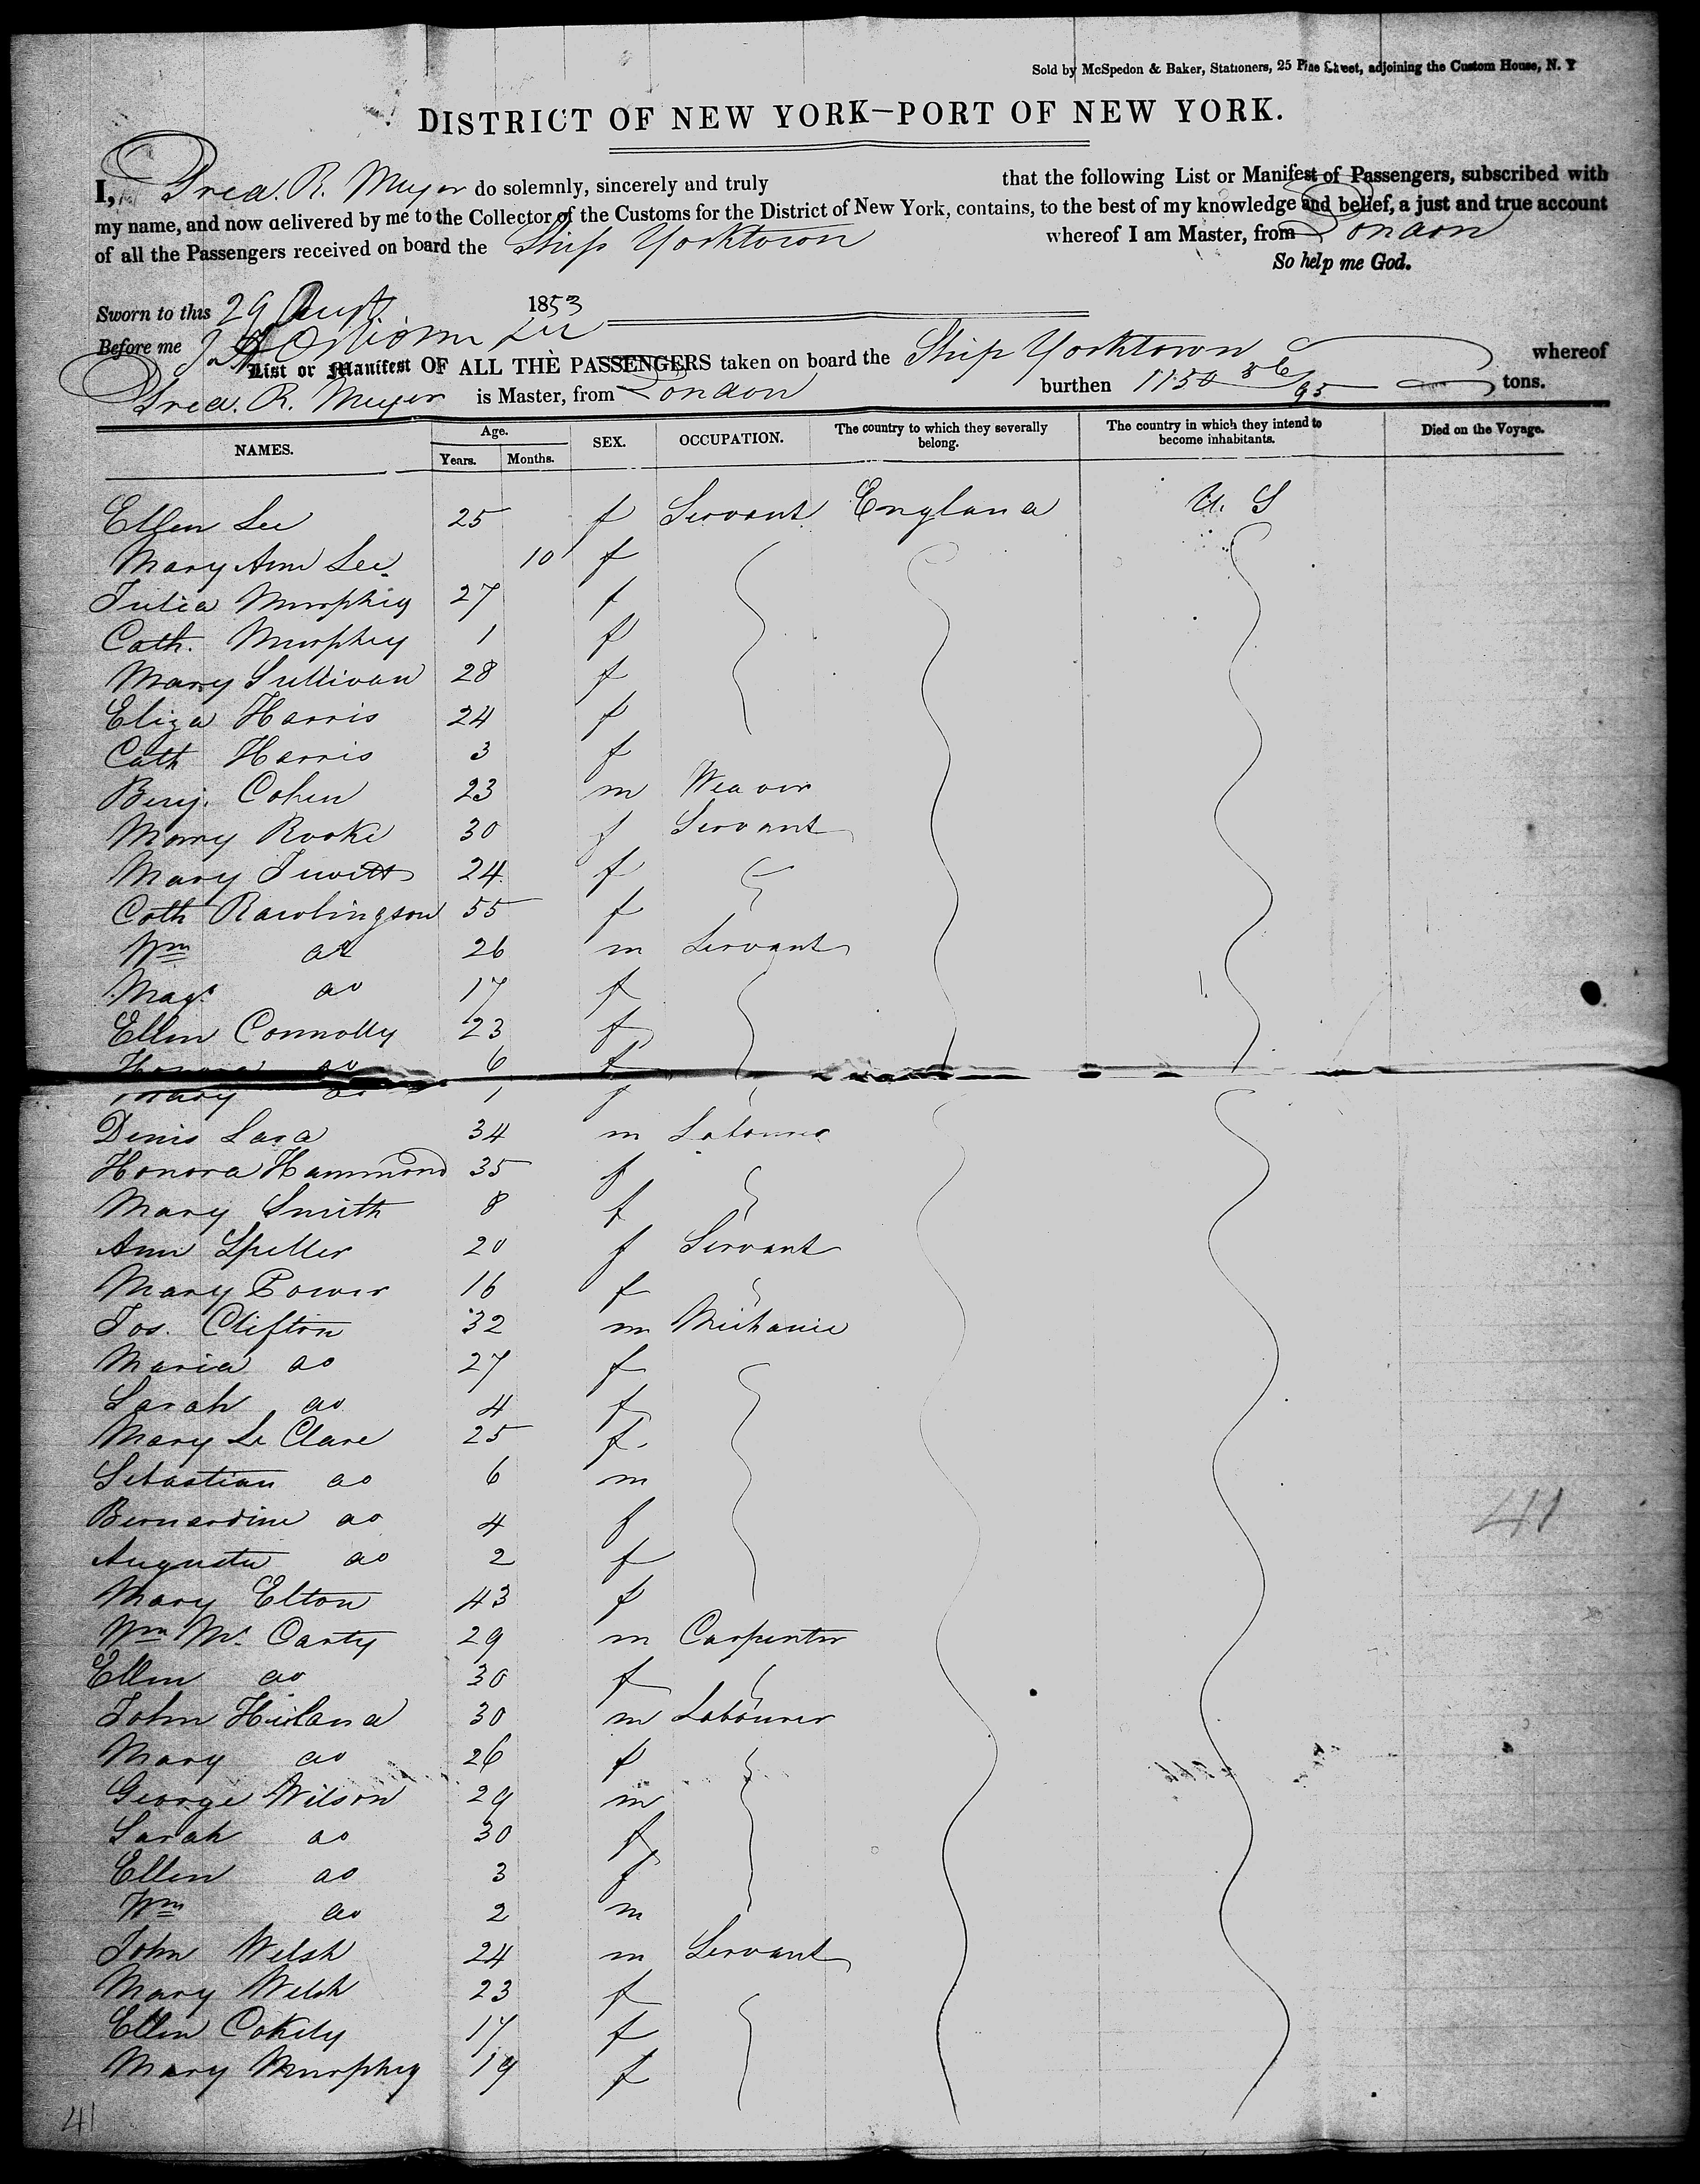 Sold by McSpedon & Baker, Stationers, 25 Pine Street, adjoining the Custom House, N. Y
DISTRICT OF NEW YORK—PORT OF NEW YORK.
I, Fred. R. Meyer do solemnly, sincerely and truly that the following List or Manifest of Passengers, subscribed with
my name, and now delivered by me to the Collector of the Customs for the District of New York, contains, to the best of my knowledge and belief, a just and true account
of all the Passengers received on board the Ship Yorktown whereof I am Master, from London
So help me God.
Sworn to this 29 Augt 1853
Before me
List or Manifest OF ALL THE PASSENGERS taken on board the Ship Yorktown whereof
Fred. R. Meyer is Master, from London burthen 1150 36/95 tons.
NAMES. Age. Years. Months. SEX. OCCUPATION. The country to which they severally belong. The country in which they intend to become inhabitants. Died on the Voyage.
Ellen Lee 25 f Servant England U. S
Mary Ann Lee 10 f
Julia Murphey 27 f
Cath. Murphey 1 f
Mary Sullivan 28 f
Eliza Harris 24 f
Cath Harris 3 f
Benj. Cohen 23 m Weaver
Mary Rooke 30 f Servant
Mary Jewitt 24 f
Cath Rawlingson 55 f
Wm do 26 m Servant
Magt do 17 f
Ellen Connolly 23 f
Honora do 6 f
Mary do 1 f
Denis Lara 34 m Labourer
Honora Hammond 35 f
Mary Smith 8 f
Ann Speller 20 f Servant
Mary Power 16 f
Jos. Clifton 32 m Mechanic
Maria do 27 f
Sarah do 4 f
Mary Le Clare 25 f.
Sebastian do 6 m
Bernardine do 4 f
Augusta do 2 f
Mary Elton 43 f
Wm Mc Carty 29 m Carpenter
Ellen do 30 f
John 30 m Labourer
Mary do 26 f
George Wilson 29 m
Sarah do 30 f
Ellen do 3 f
Wm do 2 m
John Welsh 24 m Servant
Mary Welsh 23 f
Ellen Cokely 17 f
Mary Murphey 19 f
41
41